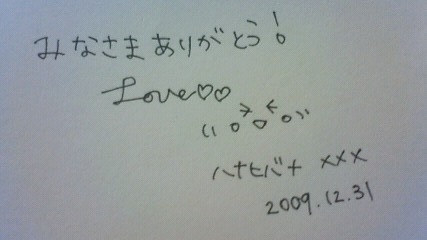 みなさまありがとう!
Love♡♡
ハナヒバナ xxx
2009.12.31